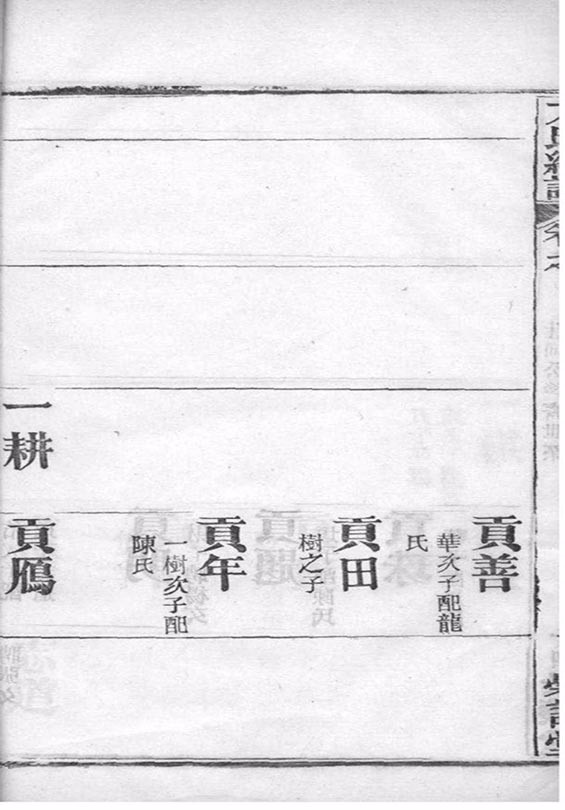 貢善
華次子配龍
氏
貢田
樹之子
貢年
一樹次子配
陳氏
一耕
貢鴈